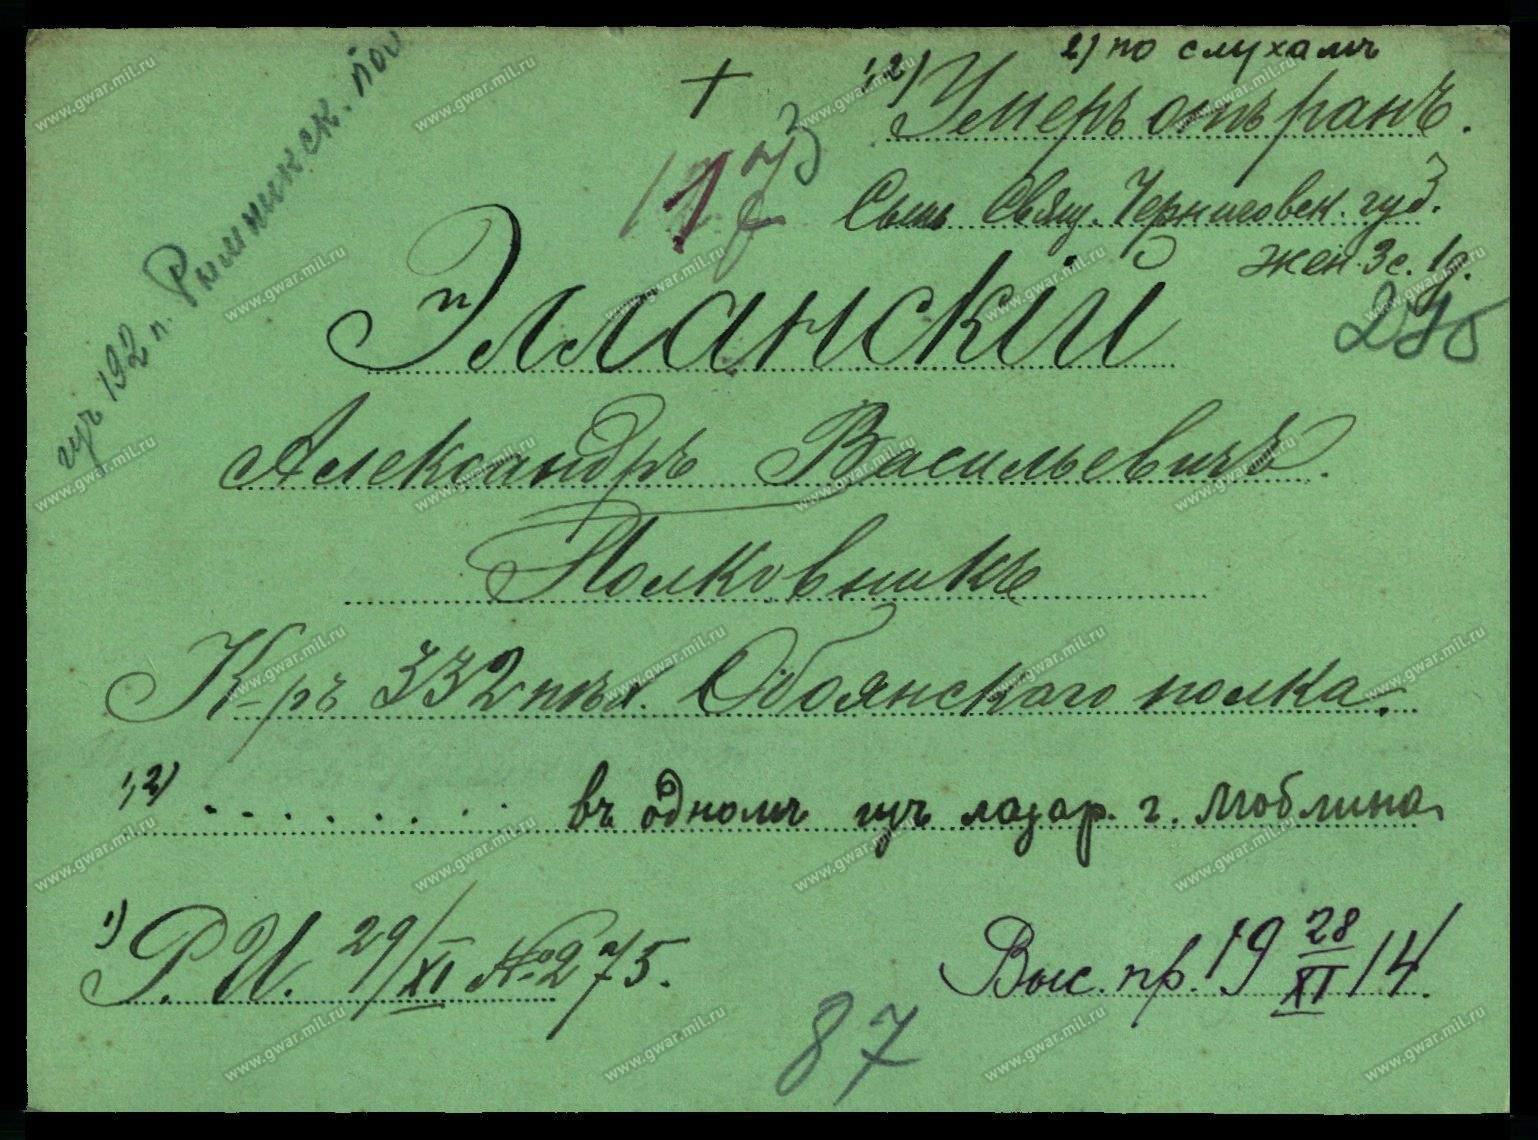 2) по слухамъ
+ 1,2) Умеръ отъ ранъ.
изъ 192 п. Рымникск. пол
173
1
Сынъ Свящ. Черниговск. губ.
жен. 3с. 1д.
Элланскій
Александръ Васильевичъ.
Полковникъ
К-ръ 332 пѣх. Обоянскаго полка.
1,2) . . . . . . . . въ одномъ изъ лазар. г. Люблина.
1) Р.И. 29/XI № 275.
Выс. пр. 19 28/XI 14
87